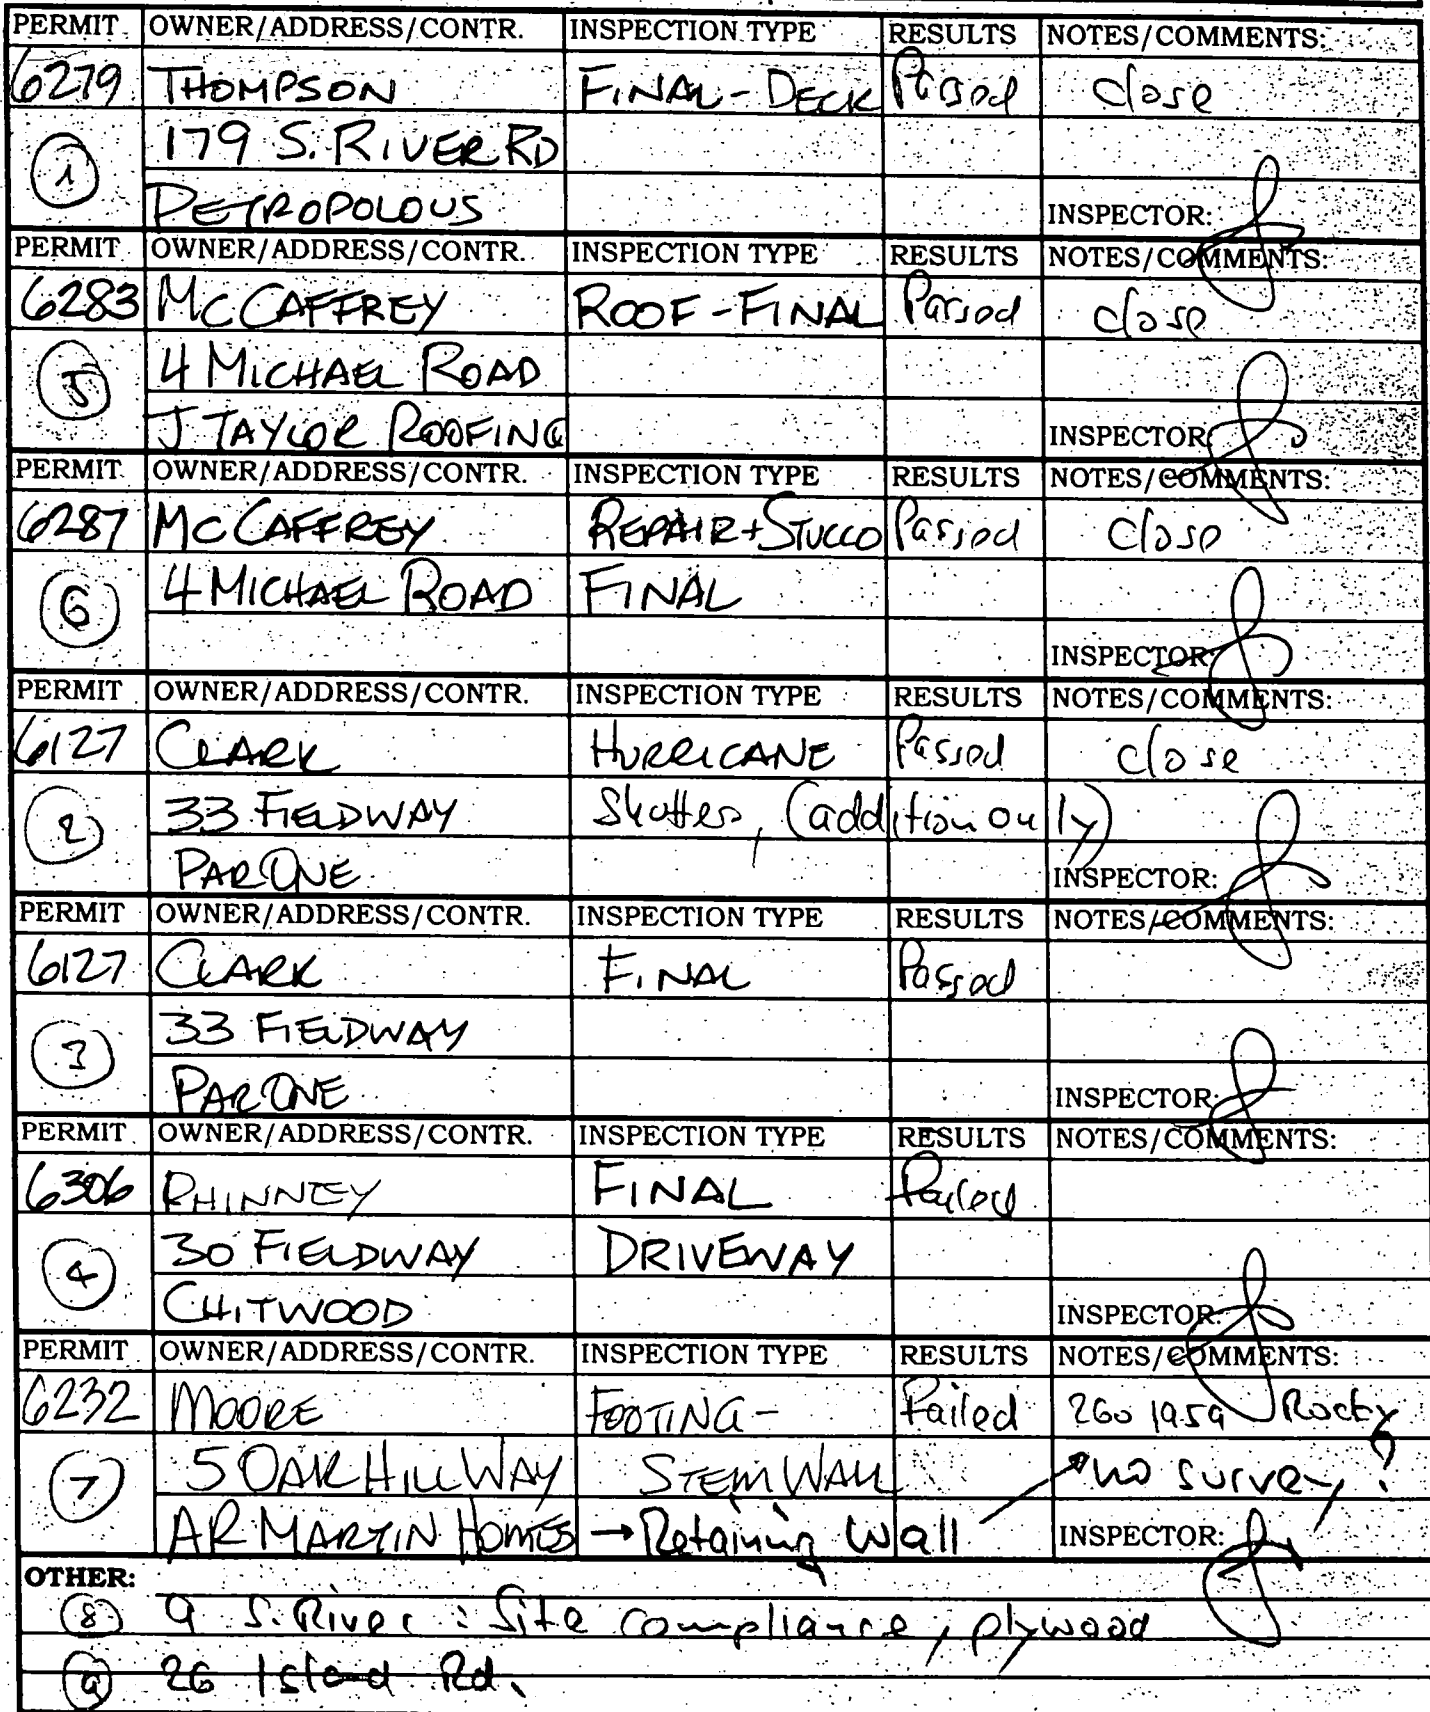 PERMIT OWNER/ADDRESS/CONTR. INSPECTION TYPE RESULTS NOTES/COMMENTS:
6279 THOMPSON FINAL - DECK Passed close
1 179 S. RIVER RD
PETROPOLOUS INSPECTOR:
PERMIT OWNER/ADDRESS/CONTR. INSPECTION TYPE RESULTS NOTES/COMMENTS:
6283 MCCAFFREY ROOF - FINAL Passed close
5 4 MICHAEL ROAD
J TAYLOR ROOFING INSPECTOR:
PERMIT OWNER/ADDRESS/CONTR. INSPECTION TYPE RESULTS NOTES/COMMENTS:
6287 MCCAFFREY REPAIR + STUCCO Passed close
6 4 MICHAEL ROAD FINAL
INSPECTOR:
PERMIT OWNER/ADDRESS/CONTR. INSPECTION TYPE RESULTS NOTES/COMMENTS:
6127 CLARK HURRICANE Passed close
2 33 FIELDWAY Shutters, (addition only)
PARONE INSPECTOR:
PERMIT OWNER/ADDRESS/CONTR. INSPECTION TYPE RESULTS NOTES/COMMENTS:
6127 CLARK FINAL Passed
3 33 FIELDWAY
PARONE INSPECTOR:
PERMIT OWNER/ADDRESS/CONTR. INSPECTION TYPE RESULTS NOTES/COMMENTS:
6306 PHINNEY FINAL Failed
4 30 FIELDWAY DRIVEWAY
CHITWOOD INSPECTOR:
PERMIT OWNER/ADDRESS/CONTR. INSPECTION TYPE RESULTS NOTES/COMMENTS:
6232 MOORE FOOTING - Failed 260 1959 Rocky
7 5 OAK HILL WAY STEM WALL no survey?
AR MARTIN HOMES → Retaining Wall INSPECTOR:
OTHER:
8 9 S. River : Site compliance, plywood
9 26 Island Rd.